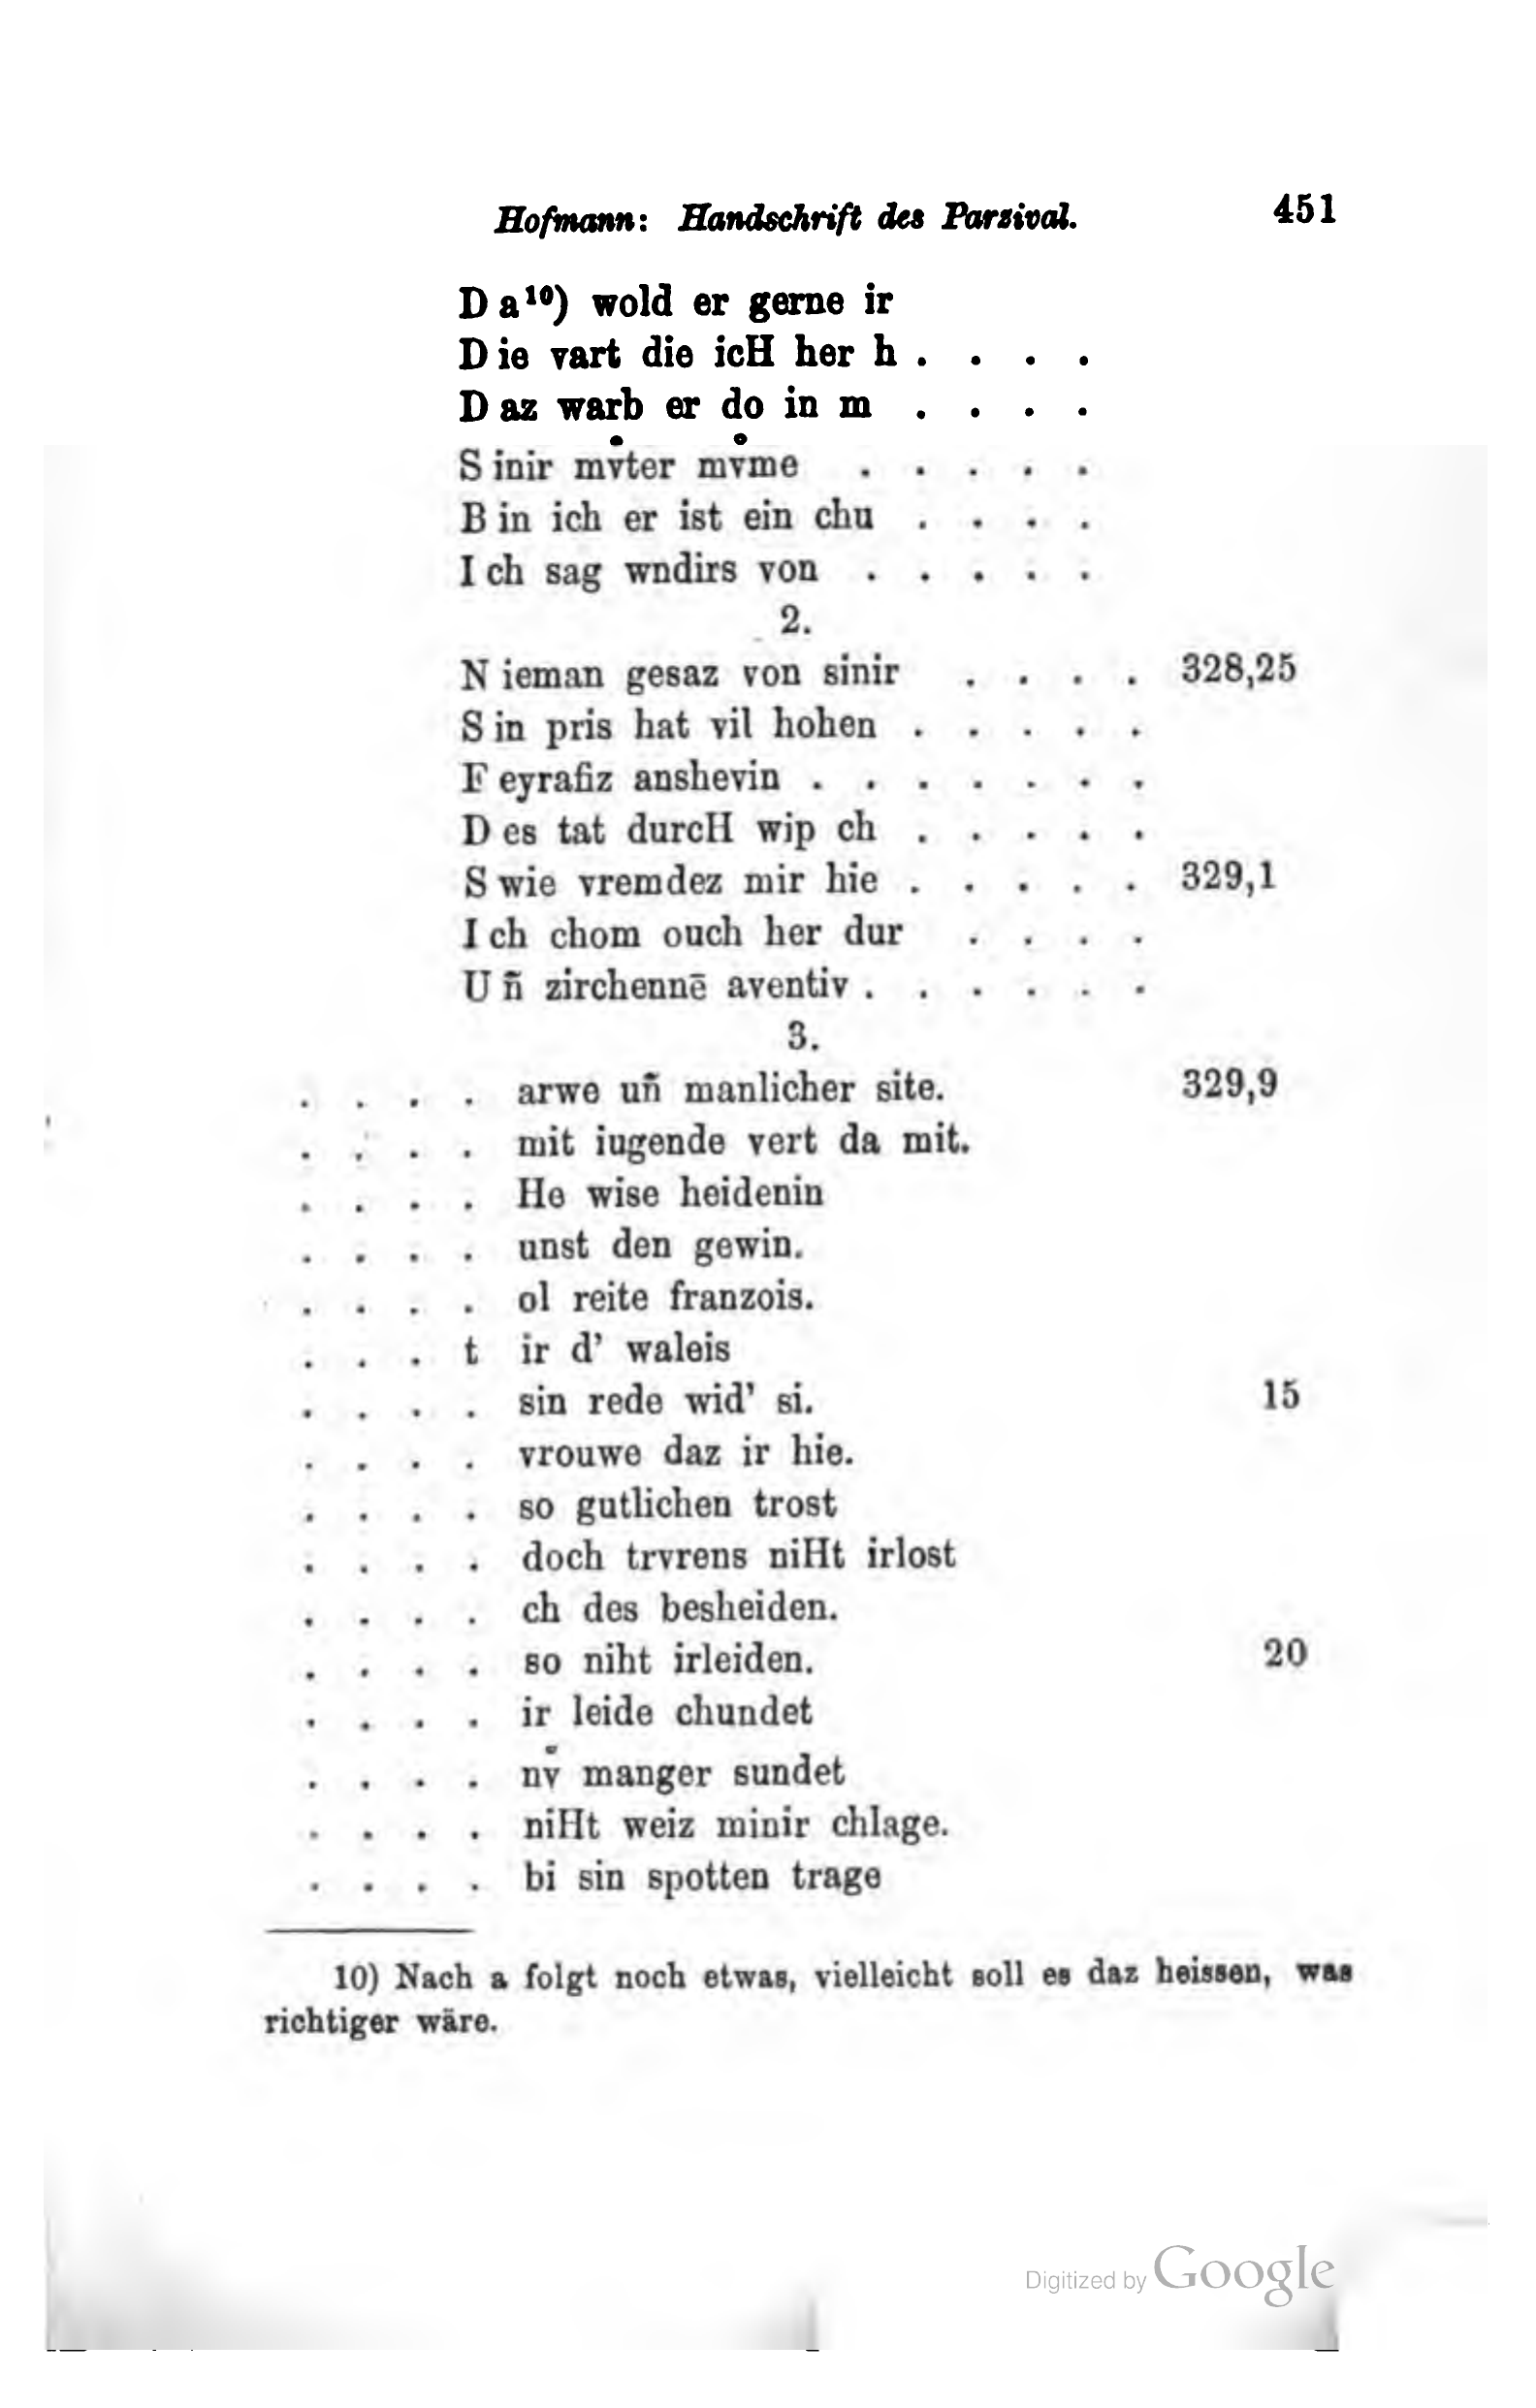 Hofmann: Handschrift des Parzival. 451
D a¹⁰) wold er gerne ir
D ie vart die icH her h . . . .
D az warb er do in m . . . .
S inir mv̊ter mv̊me . . . . .
B in ich er ist ein chu . . . .
I ch sag wndirs von . . . . .
2.
N ieman gesaz von sinir . . . . 328,25
S in pris hat vil hohen . . . . .
F eyrafiz anshevin . . . . . . .
D es tat durcH wip ch . . . . .
S wie vremdez mir hie . . . . . 329,1
I ch chom ouch her dur . . . .
U ñ zirchennē aventiv . . . . . .
3.
. . . . arwe uñ manlicher site. 329,9
. . . . mit iugende vert da mit.
. . . . He wise heidenin
. . . . unst den gewin.
. . . . ol reite franzois.
. . . t ir d' waleis
. . . . sin rede wid' si. 15
. . . . vrouwe daz ir hie.
. . . . so gutlichen trost
. . . . doch trvrens niHt irlost
. . . . ch des besheiden.
. . . . so niht irleiden. 20
. . . . ir leide chundet
. . . . nv̊ manger sundet
. . . . niHt weiz minir chlage.
. . . . bi sin spotten trage
10) Nach a folgt noch etwas, vielleicht soll es daz heissen, was
richtiger wäre.
Digitized by Google